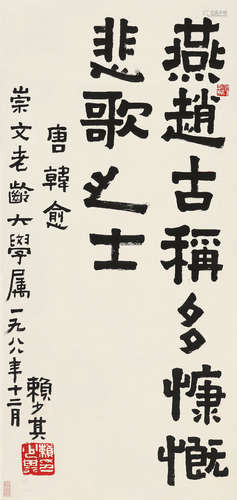 燕趙古稱多慷慨
悲歌之士
唐韓愈
崇文老齡大學属一九八八年十二月
賴少其